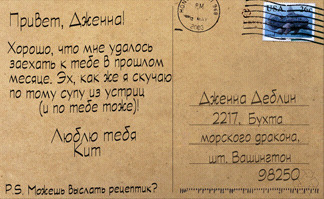 Привет, Дженна!
Хорошо, что мне удалось
заехать к тебе в прошлом
месяце. Эх, как же я скучаю
по тому супу из устриц
(и по тебе тоже)!
Люблю тебя
Кит
P.S. Можешь выслать рецептик?
P.M.
USA
Дженна Деблин
2217, Бухта
морского дракона,
шт. Вашингтон
98250